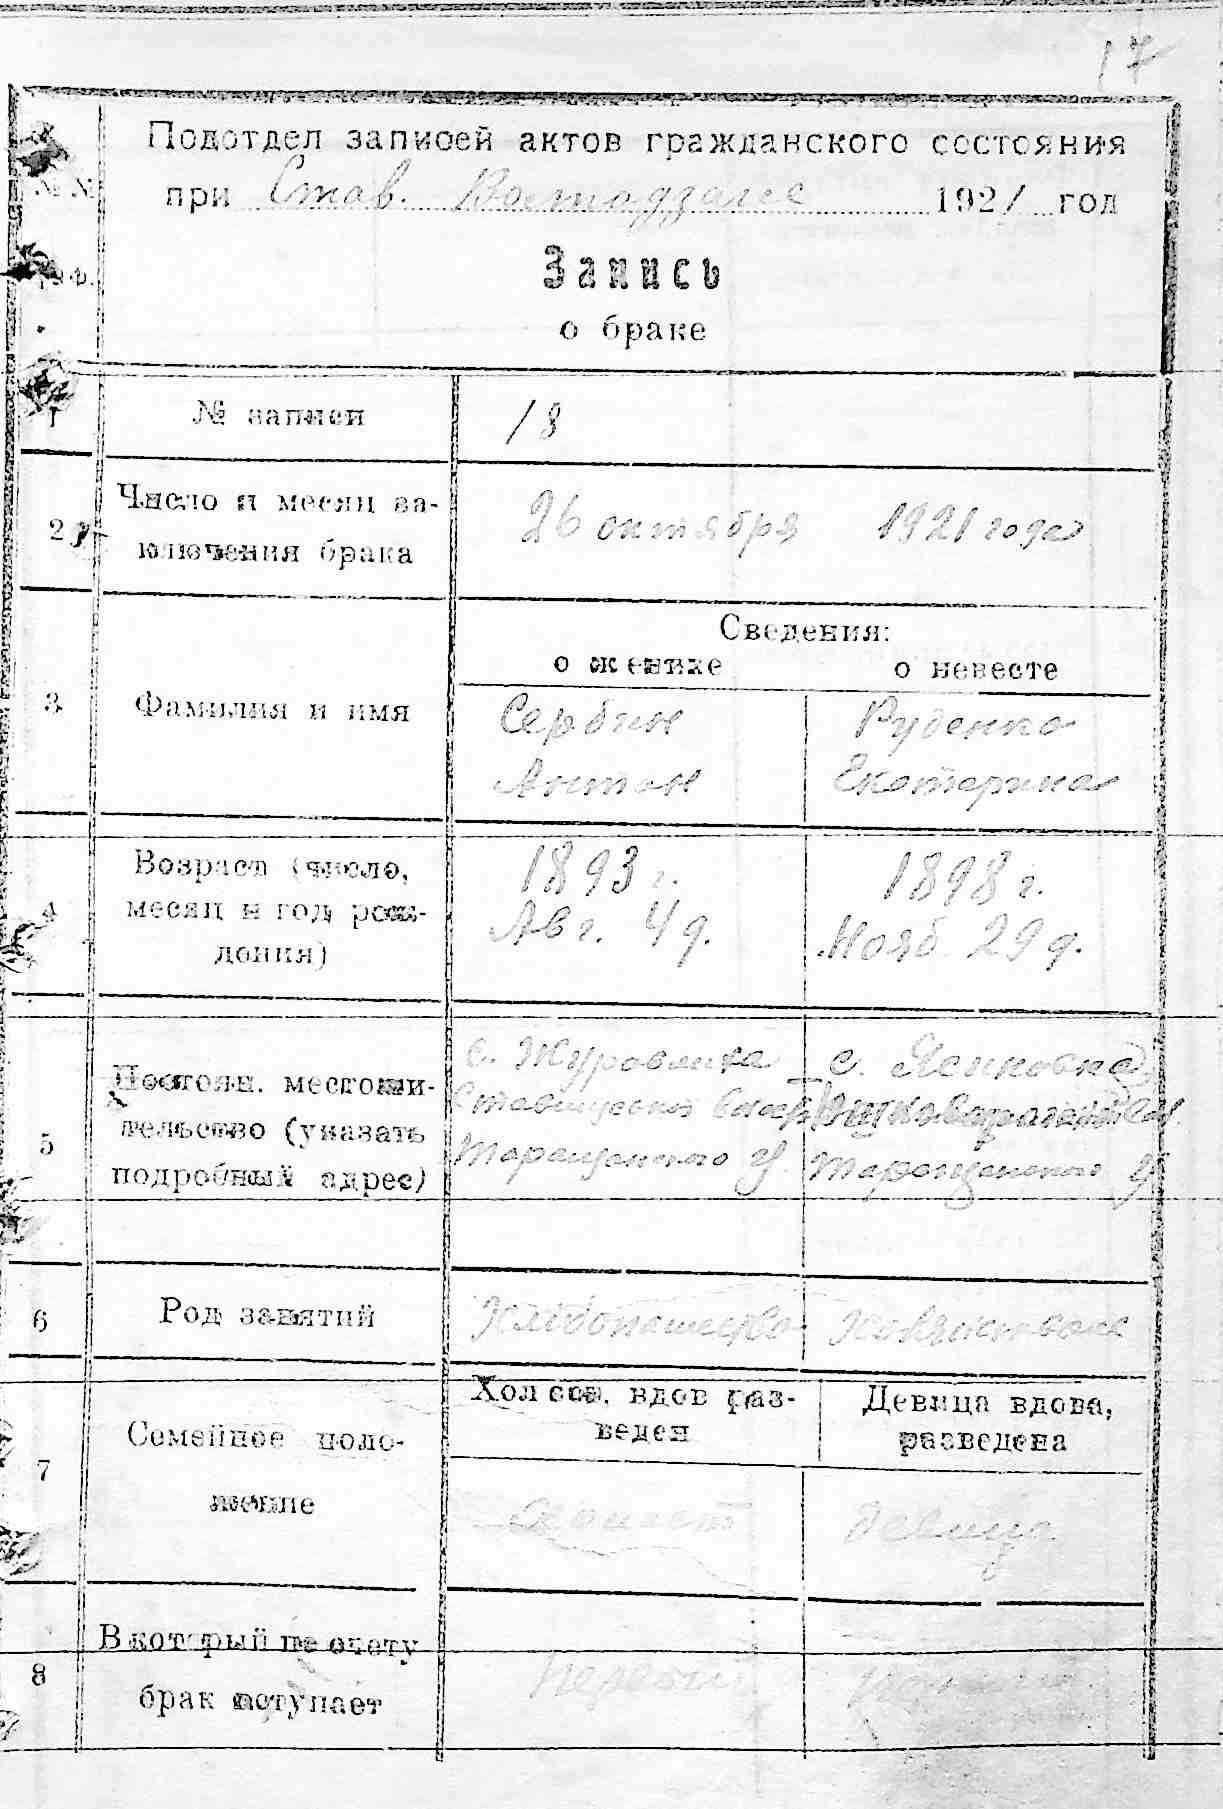 17
Подотдел записей актов гражданского состояния
№ №
при Став. 1921 год
Запись
о браке
1
№ записи
18
2
Число и месяц за-
ключения брака
26 октября 1921 года
Сведения:
о женихе
о невесте
3
Фамилия и имя
Сербин
Антон
Руденко
Екатерина
4
Возраст (число,
месяц и год рож-
дения)
1893 г.
Авг. 4 д.
1898 г.
Нояб. 29 д.
5
Постоян. местожи-
тельство (указать
подробный адрес)
с. Журовлиха
Ставищеской волос.
Таращанского у.
с. Ясиновка
Таращанского у.
6
Род занятий
Хлібопашество
7
Семейное поло-
жение
Холост, вдов раз-
веден
Девица вдова,
разведена
холост
девица
8
В который по счету
брак вступает
Первый